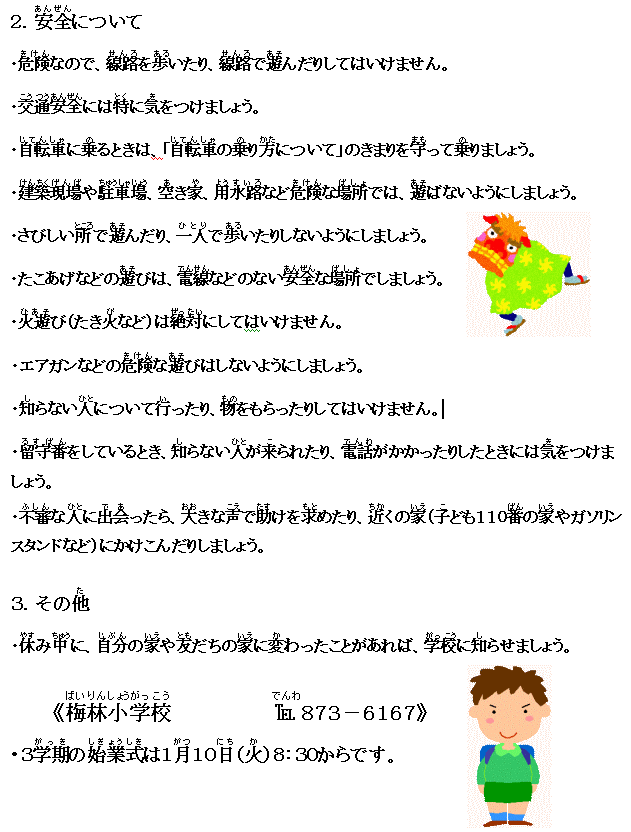 ２．安全について
・危険なので、線路を歩いたり、線路で遊んだりしてはいけません。
・交通安全には特に気をつけましょう。
・自転車に乗るときは、「自転車の乗り方について」のきまりを守って乗りましょう。
・建築現場や駐車場、空き家、用水路など危険な場所では、遊ばないようにしましょう。
・さびしい所で遊んだり、一人で歩いたりしないようにしましょう。
・たこあげなどの遊びは、電線などのない安全な場所でしましょう。
・火遊び（たき火など）は絶対にしてはいけません。
・エアガンなどの危険な遊びはしないようにしましょう。
・知らない人について行ったり、物をもらったりしてはいけません。
・留守番をしているとき、知らない人が来られたり、電話がかかったりしたときには気をつけま
しょう。
・不審な人に出会ったら、大きな声で助けを求めたり、近くの家（子ども１１０番の家やガソリン
スタンドなど）にかけこんだりしましょう。
３．その他
・休み中に、自分の家や友だちの家に変わったことがあれば、学校に知らせましょう。
《梅林小学校　℡８７３－６１６７》
・３学期の始業式は１月１０日（火）８：３０からです。